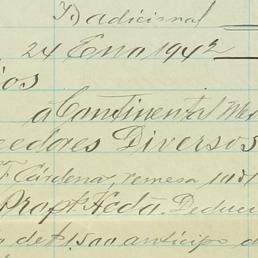 Tradicional
24 Eno 1942
ios
á Continental Me
eedaes Diversos
F. Cárdenas, remesa
Propt Heda. Deduci
de $1.500 anticipo d